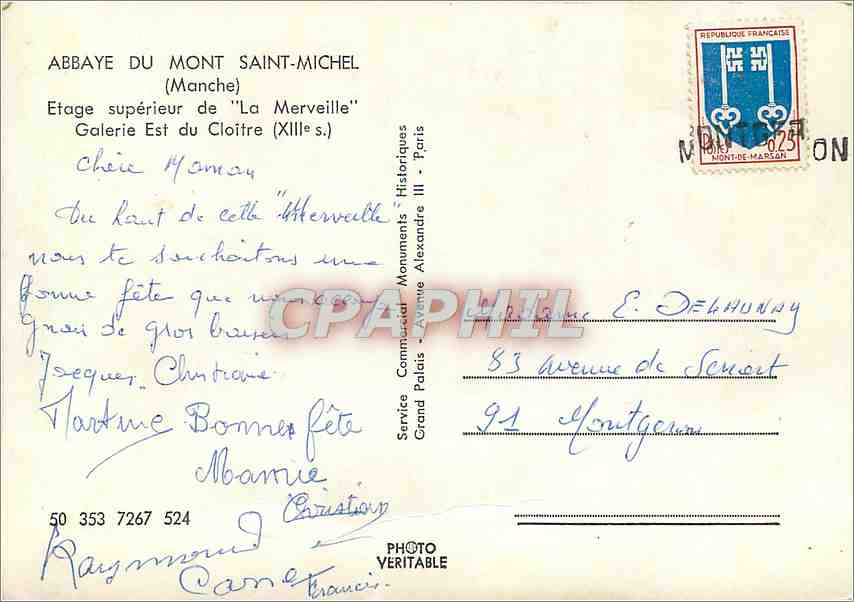 ABBAYE DU MONT SAINT-MICHEL
(Manche)
Etage supérieur de "La Merveille"
Galerie Est du Cloître (XIIIe s.)
Chère Maman
Du haut de cette "Merveille"
nous te souhaitons une
bonne fête que nous
de gros baisers
Jacques Christiane
Martine Bonne fête
Mamie
Christian
50 353 7267 524
Raymond
Francis
Service Commercial Monuments Historiques
Grand Palais - Avenue Alexandre III - Paris
PHOTO
VERITABLE
REPUBLIQUE FRANÇAISE
0,25
MONT-DE-MARSAN
ON
CPAPHIL
Madame E. DELAUNAY
83 avenue de Senart
91 Montgeron